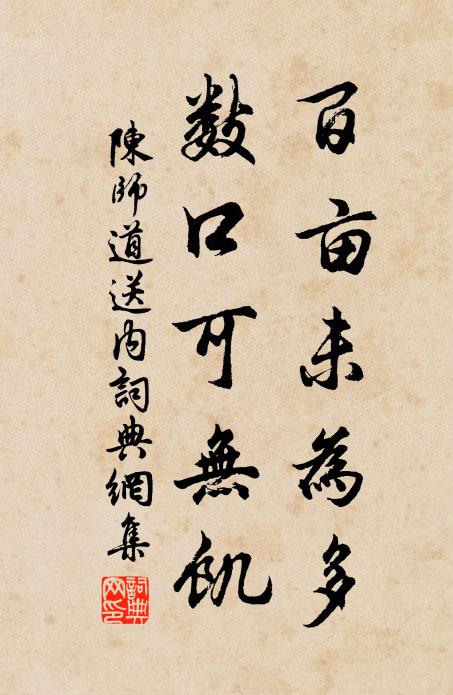 百亩未為多
數口可無飢
陳師道送内詞典網集
詞典網印